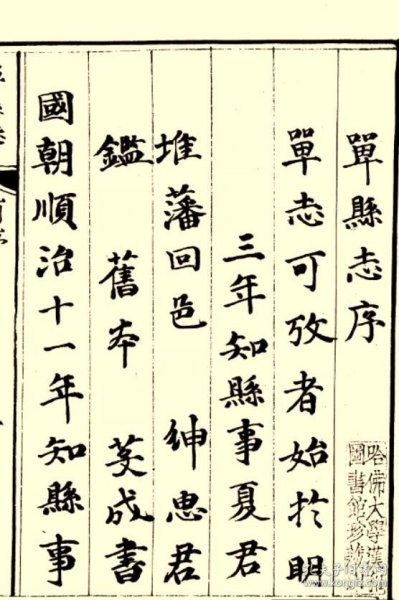 單縣志序
單志可攷者始於明
三年知縣事夏君
堆藩回邑 紳惠君
鑑 舊本 成書
國朝順治十一年知縣事
哈佛大學漢和
圖書館珍藏